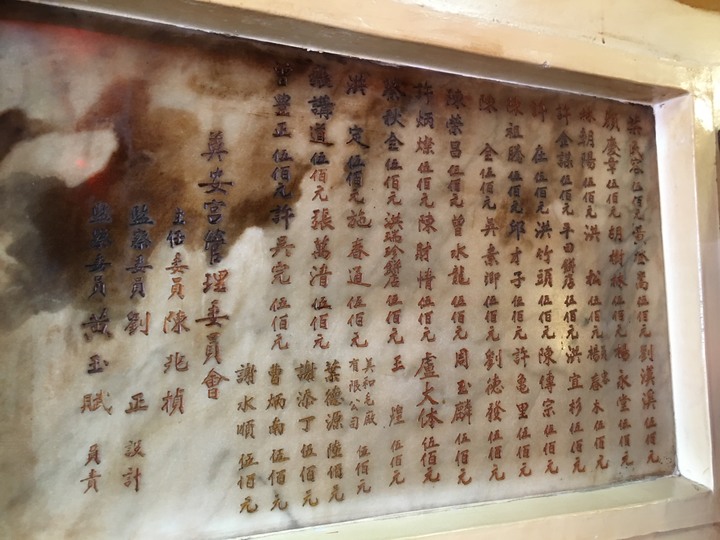 葉民家伍佰元黃登嵩伍佰元劉漢溪伍佰元
顏慶章伍佰元胡樹林伍佰元楊永堂伍佰元
林朝陽伍佰元洪松伍佰元楊春木伍佰元
許金謀伍佰元平田餅店伍佰元洪宜杉伍佰元
許在伍佰元洪竹頭伍佰元陳傳宗伍佰元
陳祖騰伍佰元邱才子伍佰元許龜里伍佰元
陳含伍佰元吳素卿伍佰元劉德發伍佰元
陳榮昌伍佰元曾水龍伍佰元周玉麟伍佰元
許炳燦伍佰元陳財情伍佰元盧大体伍佰元
蔡秋全伍佰元洪瑞珍餅店伍佰元王煌伍佰元
洪定伍佰元施春通伍佰元美和毛廠有限公司伍佰元
講道伍佰元張萬清伍佰元葉德源陸佰元
謝添丁伍佰元
豐正伍佰元許吳完伍佰元曹炳南伍佰元
謝水順伍佰元
奠安宮管理委員會
主任委員陳兆楨
監察委員劉正設計
監察委員黃玉賦負責